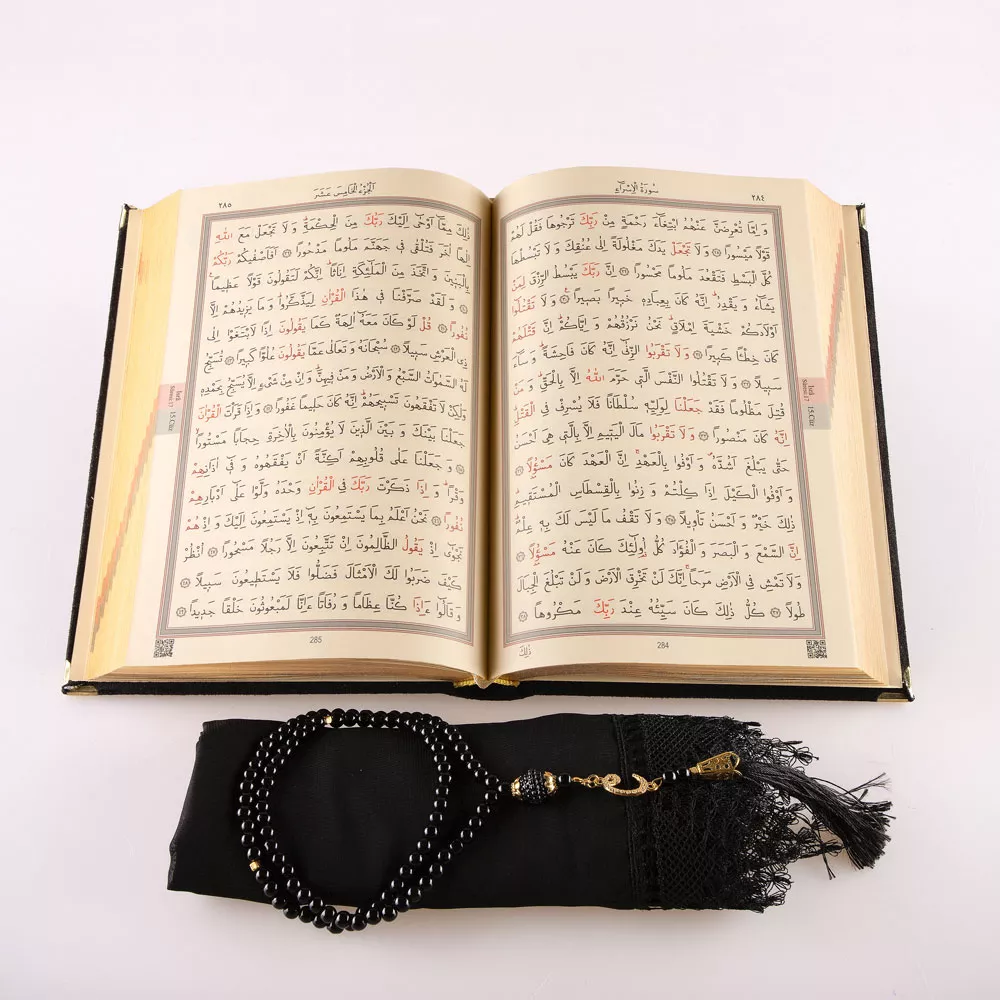 سُورَةُ الْاِسْرَٓاءِ
٢٨٤
وَ اِمَّا تُعْرِضَنَّ عَنْهُمُ ابْتِغَٓاءَ رَحْمَةٍ مِنْ رَبِّكَ تَرْجُوهَا فَقُلْ لَهُمْ
قَوْلاً مَيْسُوراً ﴿٢٨﴾ وَ لَا تَجْعَلْ يَدَكَ مَغْلُولَةً اِلٰى عُنُقِكَ وَ لَا تَبْسُطْهَا
كُلَّ الْبَسْطِ فَتَقْعُدَ مَلُوماً مَحْسُوراً ﴿٢٩﴾ اِنَّ رَبَّكَ يَبْسُطُ الرِّزْقَ لِمَنْ
يَشَٓاءُ وَ يَقْدِرُ اِنَّهُ كَانَ بِعِبَادِهٖ خَبٖيراً بَصٖيراً ﴿٣٠﴾ وَ لَا تَقْتُلُٓوا
اَوْلَادَكُمْ خَشْيَةَ اِمْلَاقٍ نَحْنُ نَرْزُقُهُمْ وَ اِيَّاكُمْ اِنَّ قَتْلَهُمْ
كَانَ خِطْـٔاً كَبٖيراً ﴿٣١﴾ وَ لَا تَقْرَبُوا الزِّنٰٓى اِنَّهُ كَانَ فَاحِشَةً وَ سَٓاءَ
سَبٖيلاً ﴿٣٢﴾ وَ لَا تَقْتُلُوا النَّفْسَ الَّتٖي حَرَّمَ اللّٰهُ اِلَّا بِالْحَقِّ وَ مَنْ
قُتِلَ مَظْلُوماً فَقَدْ جَعَلْنَا لِوَلِيِّهٖ سُلْطَاناً فَلَا يُسْرِفْ فِي الْقَتْلِ
اِنَّهُ كَانَ مَنْصُوراً ﴿٣٣﴾ وَ لَا تَقْرَبُوا مَالَ الْيَتٖيمِ اِلَّا بِالَّتٖي هِيَ اَحْسَنُ
حَتّٰى يَبْلُغَ اَشُدَّهُ وَ اَوْفُوا بِالْعَهْدِ اِنَّ الْعَهْدَ كَانَ مَسْؤُلاً ﴿٣٤﴾
وَ اَوْفُوا الْكَيْلَ اِذَا كِلْتُمْ وَ زِنُوا بِالْقِسْطَاسِ الْمُسْتَقٖيمِ
ذٰلِكَ خَيْرٌ وَ اَحْسَنُ تَأْوٖيلاً ﴿٣٥﴾ وَ لَا تَقْفُ مَا لَيْسَ لَكَ بِهٖ عِلْمٌ
اِنَّ السَّمْعَ وَ الْبَصَرَ وَ الْفُؤٰادَ كُلُّ اُو۬لٰٓئِكَ كَانَ عَنْهُ مَسْؤُلاً ﴿٣٦﴾
وَ لَا تَمْشِ فِي الْاَرْضِ مَرَحاً اِنَّكَ لَنْ تَخْرِقَ الْاَرْضَ وَ لَنْ تَبْلُغَ الْجِبَالَ
طُولاً ﴿٣٧﴾ كُلُّ ذٰلِكَ كَانَ سَيِّئُهُ عِنْدَ رَبِّكَ مَكْرُوهاً ﴿٣٨﴾
284
ذٰلِكَ
İsrâ
Sûresi 17
15.Cüz
اَلْجُزْءُ الْخَامِسَ عَشَرَ
٢٨٥
ذٰلِكَ مِمَّٓا اَوْحٰٓى اِلَيْكَ رَبُّكَ مِنَ الْحِكْمَةِ وَ لَا تَجْعَلْ مَعَ اللّٰهِ
اِلٰهاً اٰخَرَ فَتُلْقٰى فٖي جَهَنَّمَ مَلُوماً مَدْحُوراً ﴿٣٩﴾ اَفَاَصْفٰيكُمْ رَبُّكُمْ
بِالْبَنٖينَ وَ اتَّخَذَ مِنَ الْمَلٰٓئِكَةِ اِنَاثاً اِنَّكُمْ لَتَقُولُونَ قَوْلاً عَظٖيماً ﴿٤٠﴾
وَ لَقَدْ صَرَّفْنَا فٖي هٰذَا الْقُرْاٰنِ لِيَذَّكَّرُوا وَ مَا يَزٖيدُهُمْ اِلَّا
نُفُوراً ﴿٤١﴾ قُلْ لَوْ كَانَ مَعَهُٓ اٰلِهَةٌ كَمَا يَقُولُونَ اِذاً لَابْتَغَوْا اِلٰى
ذِي الْعَرْشِ سَبٖيلاً ﴿٤٢﴾ سُبْحَانَهُ وَ تَعَالٰى عَمَّا يَقُولُونَ عُلُوًّا كَبٖيراً ﴿٤٣﴾ تُسَبِّحُ
لَهُ السَّمٰوَاتُ السَّبْعُ وَ الْاَرْضُ وَ مَنْ فٖيهِنَّ وَ اِنْ مِنْ شَيْءٍ اِلَّا يُسَبِّحُ بِحَمْدِهٖ
وَلٰكِنْ لَا تَفْقَهُونَ تَسْبٖيحَهُمْ اِنَّهُ كَانَ حَلٖيماً غَفُوراً ﴿٤٤﴾ وَ اِذَا قَرَأْتَ الْقُرْاٰنَ
جَعَلْنَا بَيْنَكَ وَ بَيْنَ الَّذٖينَ لَا يُؤْمِنُونَ بِالْاٰخِرَةِ حِجَاباً مَسْتُوراً ﴿٤٥﴾
وَ جَعَلْنَا عَلٰى قُلُوبِهِمْ اَكِنَّةً اَنْ يَفْقَهُوهُ وَ فٖٓي اٰذَانِهِمْ
وَقْراً وَ اِذَا ذَكَرْتَ رَبَّكَ فِي الْقُرْاٰنِ وَحْدَهُ وَلَّوْا عَلٰٓى اَدْبَارِهِمْ
نُفُوراً ﴿٤٦﴾ نَحْنُ اَعْلَمُ بِمَا يَسْتَمِعُونَ بِهٖٓ اِذْ يَسْتَمِعُونَ اِلَيْكَ وَ اِذْ هُمْ
نَجْوٰٓى اِذْ يَقُولُ الظَّالِمُونَ اِنْ تَتَّبِعُونَ اِلَّا رَجُلاً مَسْحُوراً ﴿٤٧﴾ اُنْظُرْ
كَيْفَ ضَرَبُوا لَكَ الْاَمْثَالَ فَضَلُّوا فَلَا يَسْتَطٖيعُونَ سَبٖيلاً ﴿٤٨﴾
وَ قَالُٓوا ءَاِذَا كُنَّا عِظَاماً وَ رُفَاتاً ءَاِنَّا لَمَبْعُوثُونَ خَلْقاً جَدٖيداً ﴿٤٩﴾
285
İsrâ
Sûresi 17
15.Cüz